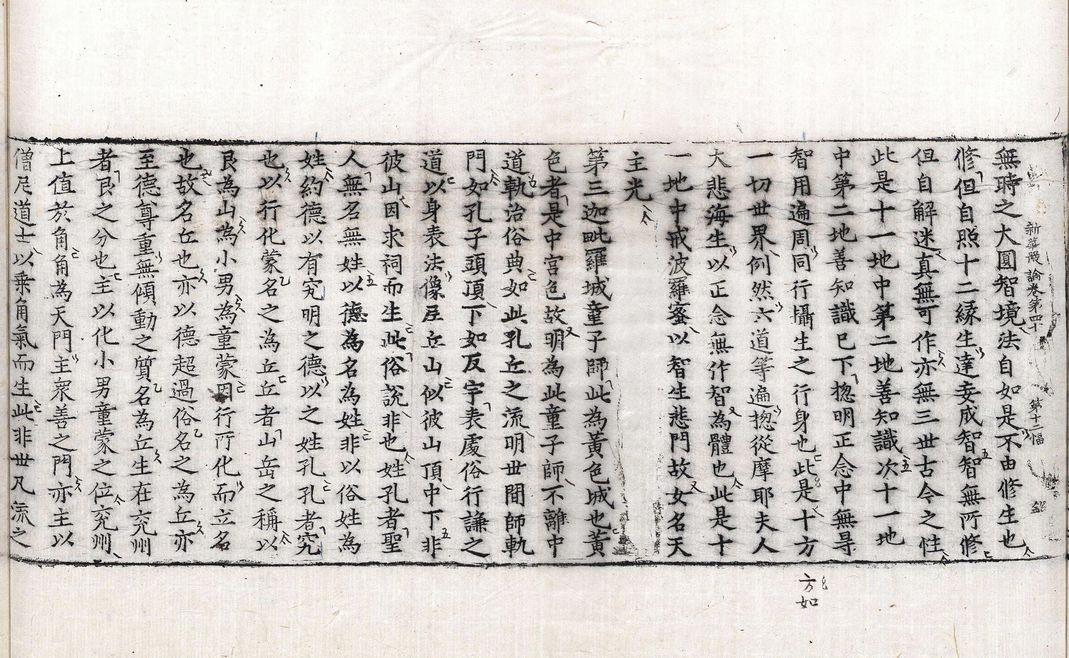 新華嚴論卷第四十 第十二幅
無時之大圓智境法自如是不由修生也
修但自照十二緣生達妄成智智無所修
但自解迷真無可作亦無三世古今之性
此是十一地中第二地善知識次十一地
中第二地善知識已下揔明正念中無㝵
智用遍周同行攝生之行身也此是十方
一切世界例然六道等遍揔從摩耶夫人
大悲海生以正念無作智為體也此是十
一地中戒波羅蜜以智生悲門故女名天
主光
第三迦毗羅城童子師此為黃色城也黃
色者是中宮色故明為此童子師不離中
道軌治俗典如此孔丘之流明世間師軌
門如孔子頭頂下如反宇表處俗行謙之
道以身表法像尼丘山似彼山頂中下非
彼山因求祠而生此俗說非也姓孔者聖
人無名無姓以德為名為姓非以俗姓為
姓約德以有究明之德以之姓孔孔者究
也以行化蒙名之為丘丘者山岳之稱以
艮為山為小男為童蒙因行所化而立名
也故名丘也亦以德超過俗名之為丘亦
至德尊重無傾動之質名為丘生在兖州
者艮之分也主以化小男童蒙之位兖州
上值於角角為天門主衆善之門亦主以
僧尼道士以乘角氣而生此非世凡流之
方如